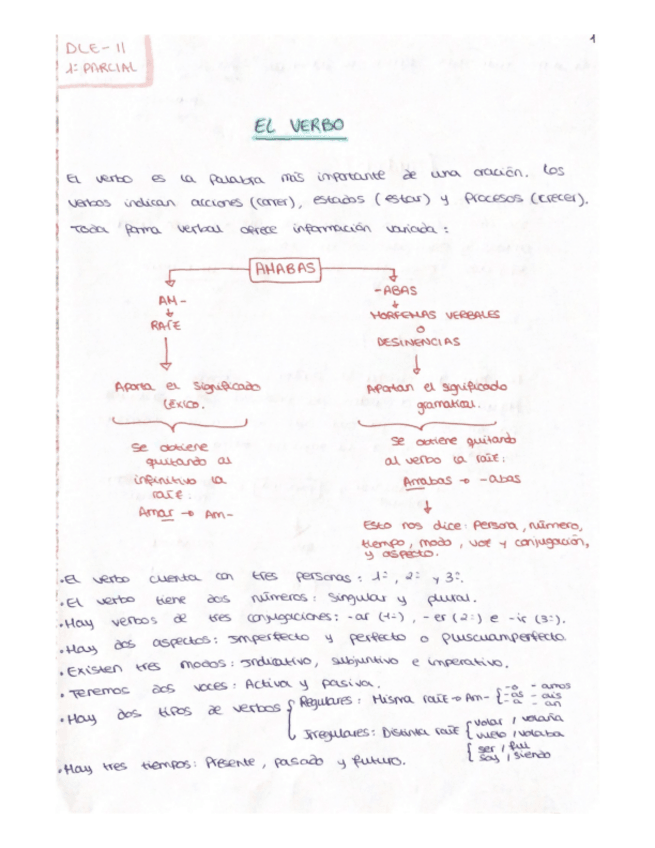 DLE-II
1
1º PARCIAL
EL VERBO
El verbo es la palabra más importante de una oración. Los
verbos indican acciones (correr), estados (estar) y procesos (crecer).
Toda forma verbal ofrece información variada:
AMABAS
AM-
RAÍZ
Aporta el significado
léxico.
Se obtiene
quitando al
infinitivo la
raíz.
Amar → Am-
-ABAS
MORFEMAS VERBALES
O
DESINENCIAS
Aportan el significado
gramatical.
Se obtiene quitando
al verbo la raíz:
Amabas → -abas
Esto nos dice: Persona, número,
tiempo, modo, voz y conjugación,
y aspecto.
·El verbo cuenta con tres personas: 1º, 2º y 3º.
·El verbo tiene dos números: Singular y plural.
·Hay verbos de tres conjugaciones: -ar (1º), -er (2º) e -ir (3º).
·Hay dos aspectos: Imperfecto y perfecto o Pluscuamperfecto.
·Existen tres modos: Indicativo, subjuntivo e imperativo.
·Tenemos dos voces: Activa y pasiva.
·Hay dos tipos de verbos
Regulares: Misma raíz → Am-
-o -amos
-as -ais
-a -an
Irregulares: Distinta raíz
volar / volaría
vuelo / volaba
ser / fui
soy / siendo
·Hay tres tiempos: Presente, pasado y futuro.